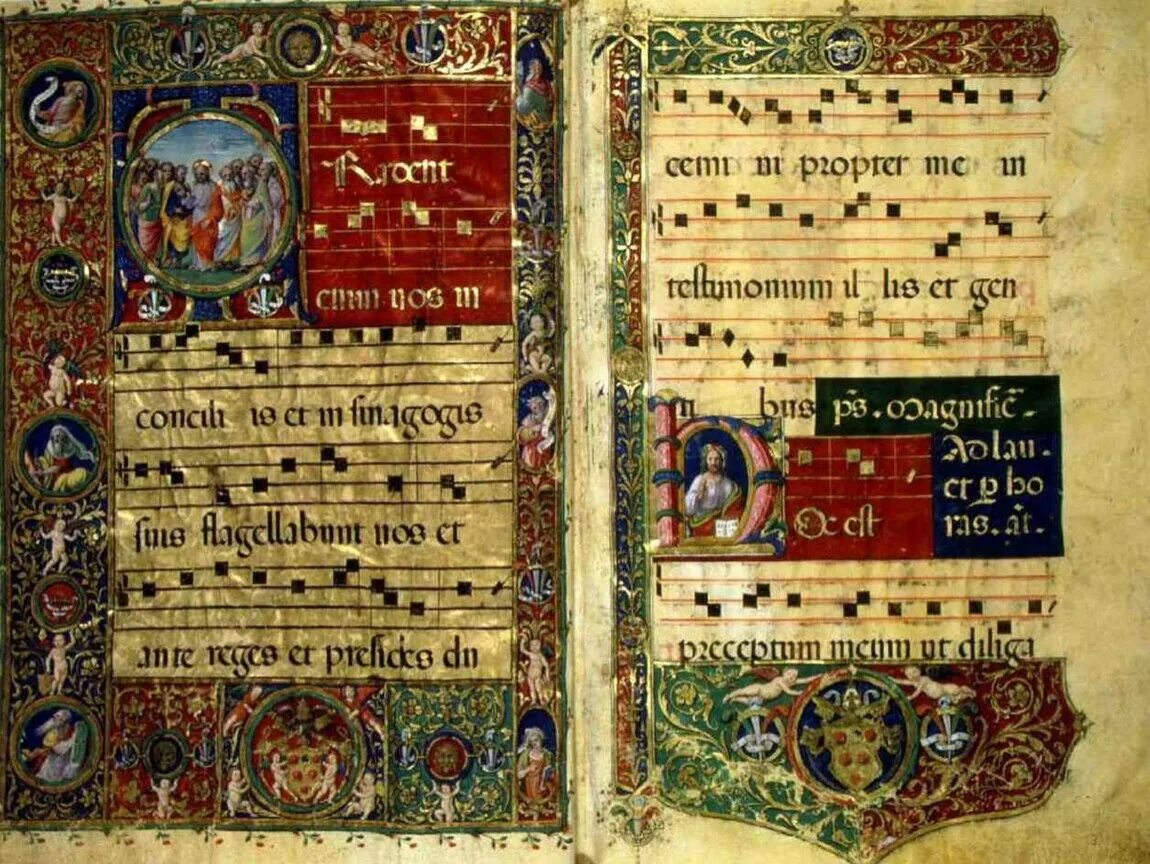 TRadent
enim uos in
concili is et in sinagogis
suis flagellabunt uos et
ante reges et presides du
cemi ni propter me in
testimonium il lis et gen
ti bus p̄s. Magnific̄.
Ad lau.
et ꝑ ho
HOc est ras. āt.
preceptum meum ut diliga